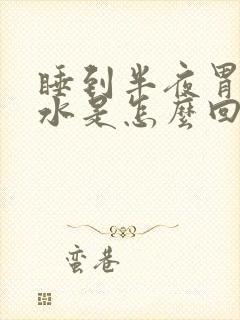 睡到半夜胃
水是怎麼回
蛮巷